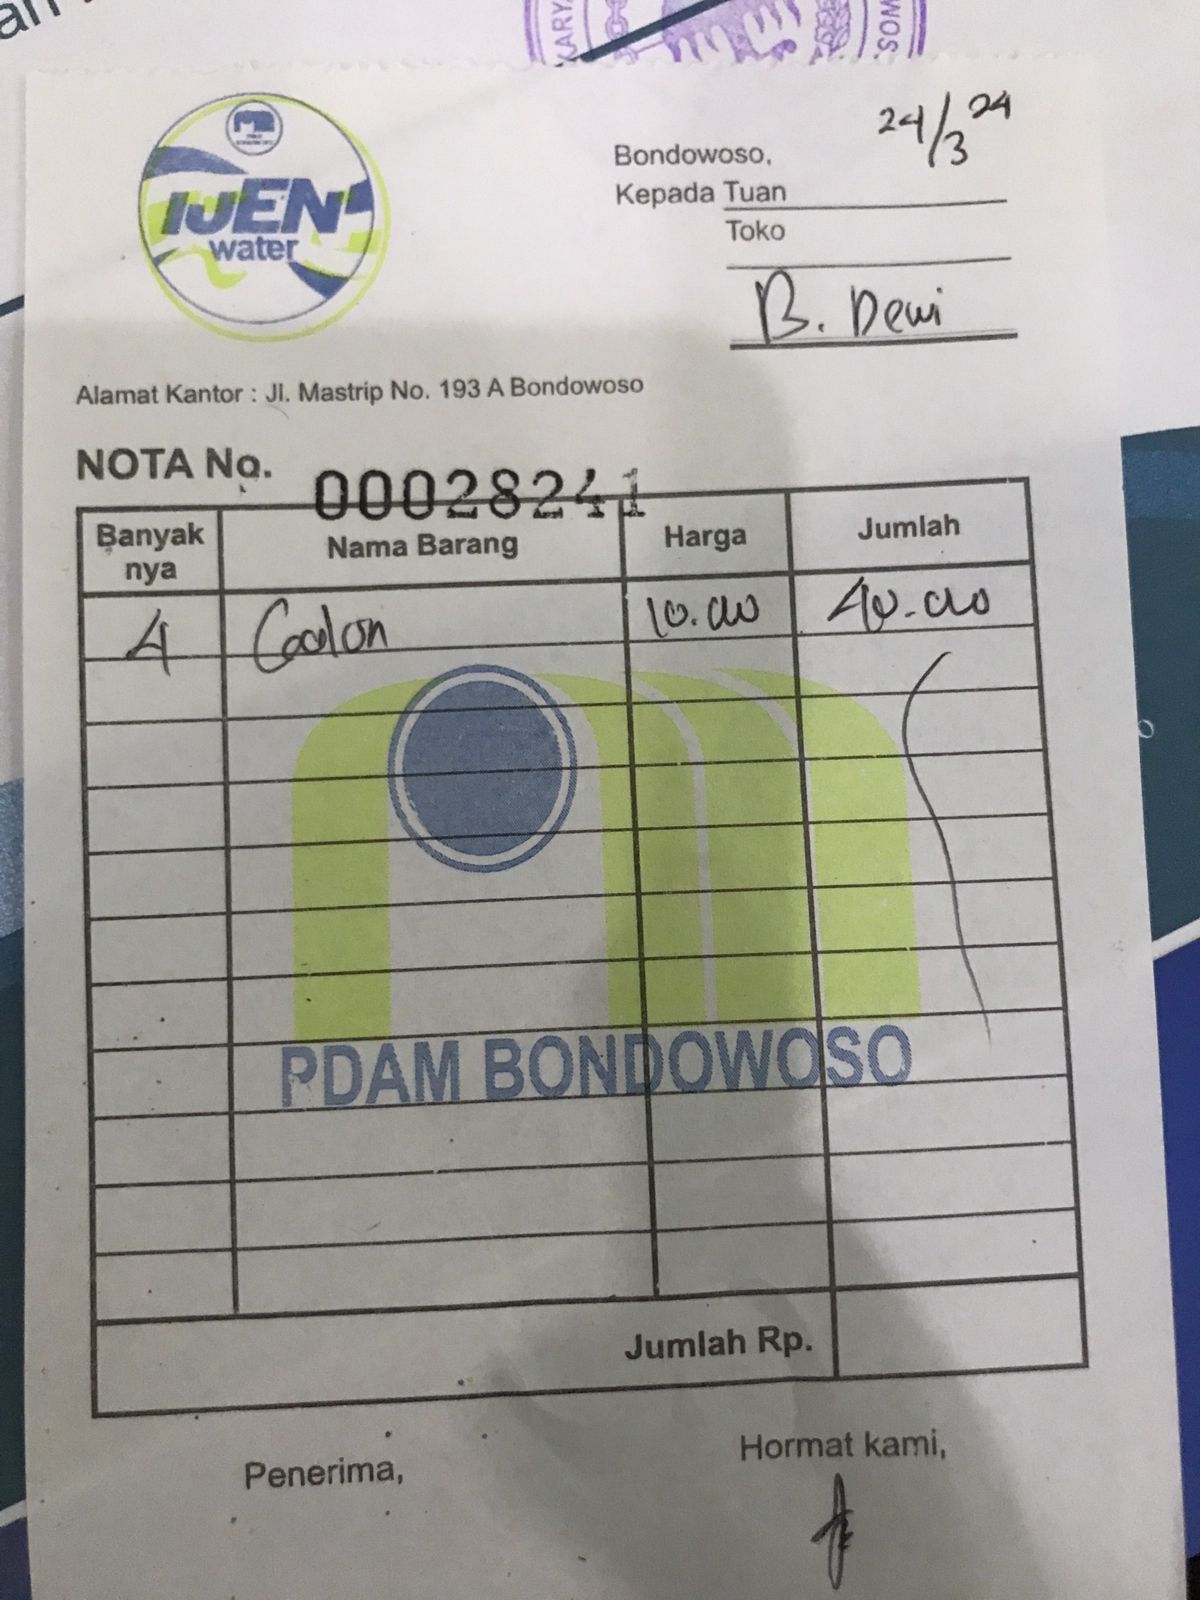 KARY
WOS
24/3 24
IJEN
water
Bondowoso,
Kepada Tuan
Toko
B. Dewi
Alamat Kantor : Jl. Mastrip No. 193 A Bondowoso
NOTA No. 00028241
Banyak nya Nama Barang Harga Jumlah
4 Galon 10.000 40.000
PDAM BONDOWOSO
Jumlah Rp.
Penerima, Hormat kami,